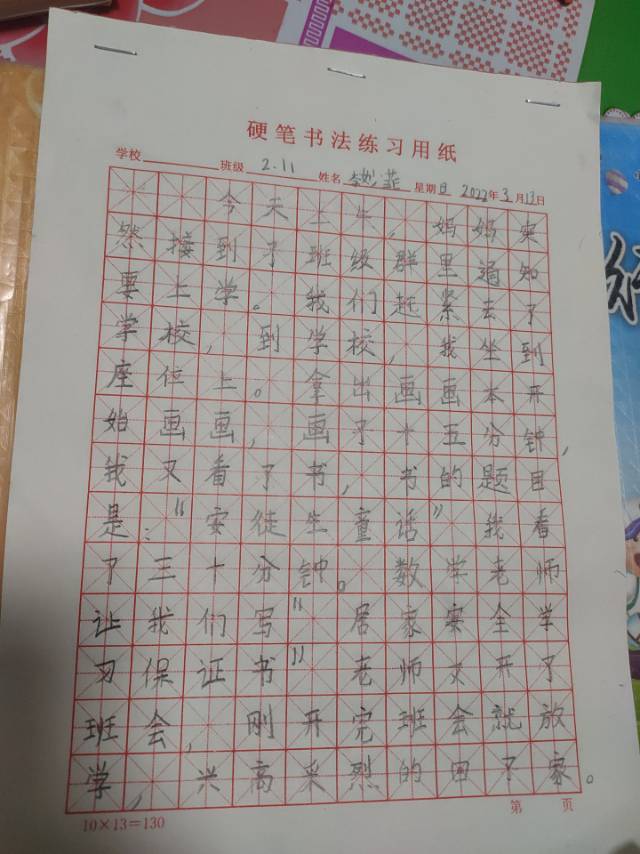 硬笔书法练习用纸
学校 班级 2.11 姓名 李妙菲 星期日 2022年3月13日
今天上午，妈妈突
然接到了班级群里通知
要上学。我们赶紧去了
学校，到学校，我坐到
座位上。拿出画画本开
始画画，画了十五分钟，
我又看了书，书的题目
是：“安徒生童话”我看
了三十分钟。数学老师
让我们写“居家安全学
习保证书”老师又开了
班会，刚开完班会就放
学，兴高采烈的回了家。
10×13=130
第 页